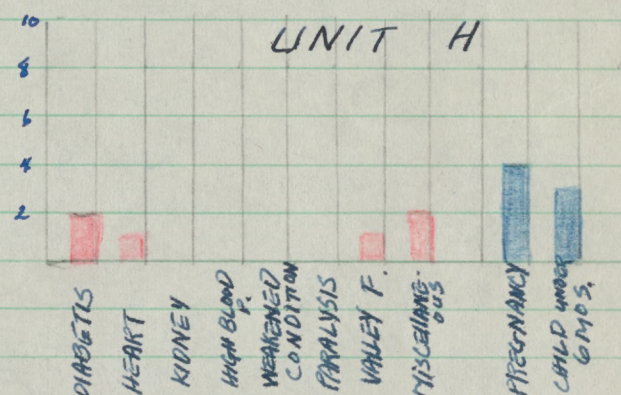 UNIT H
10
8
6
4
2
DIABETIS
HEART
KIDNEY
HIGH BLOOD
P.
WEAKENED
CONDITION
PARALYSIS
VALLEY F.
MISCELLANE-
OUS
PREGNANCY
CHILD UNDER
6 MOS.